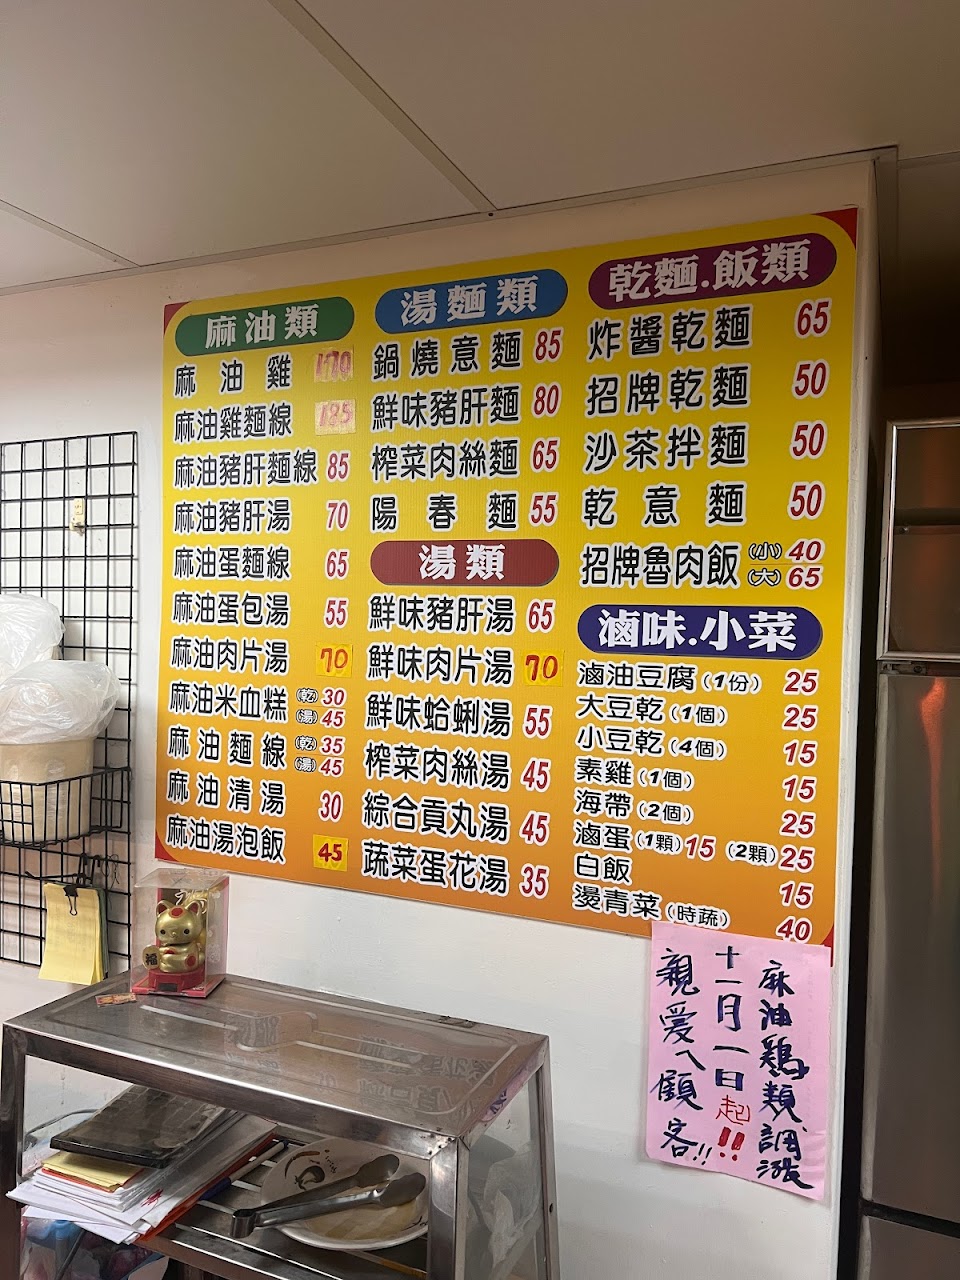 麻油類
麻油雞 170
麻油雞麵線 185
麻油豬肝麵線 85
麻油豬肝湯 70
麻油蛋麵線 65
麻油蛋包湯 55
麻油肉片湯 70
麻油米血糕 (乾) 30
(湯) 45
麻油麵線 (乾) 35
(湯) 45
麻油清湯 30
麻油湯泡飯 45
湯麵類
鍋燒意麵 85
鮮味豬肝麵 80
榨菜肉絲麵 65
陽春麵 55
湯類
鮮味豬肝湯 65
鮮味肉片湯 70
鮮味蛤蜊湯 55
榨菜肉絲湯 45
綜合貢丸湯 45
蔬菜蛋花湯 35
乾麵.飯類
炸醬乾麵 65
招牌乾麵 50
沙茶拌麵 50
乾意麵 50
招牌魯肉飯 (小) 40
(大) 65
滷味.小菜
滷油豆腐(1份) 25
大豆乾(1個) 25
小豆乾(4個) 15
素雞(1個) 15
海帶(2個) 25
滷蛋(1顆)15 (2顆)25
白飯 15
燙青菜(時蔬) 40
福
麻油鷄類調漲
十一月一日起!!
親愛ㄟ顧客!!